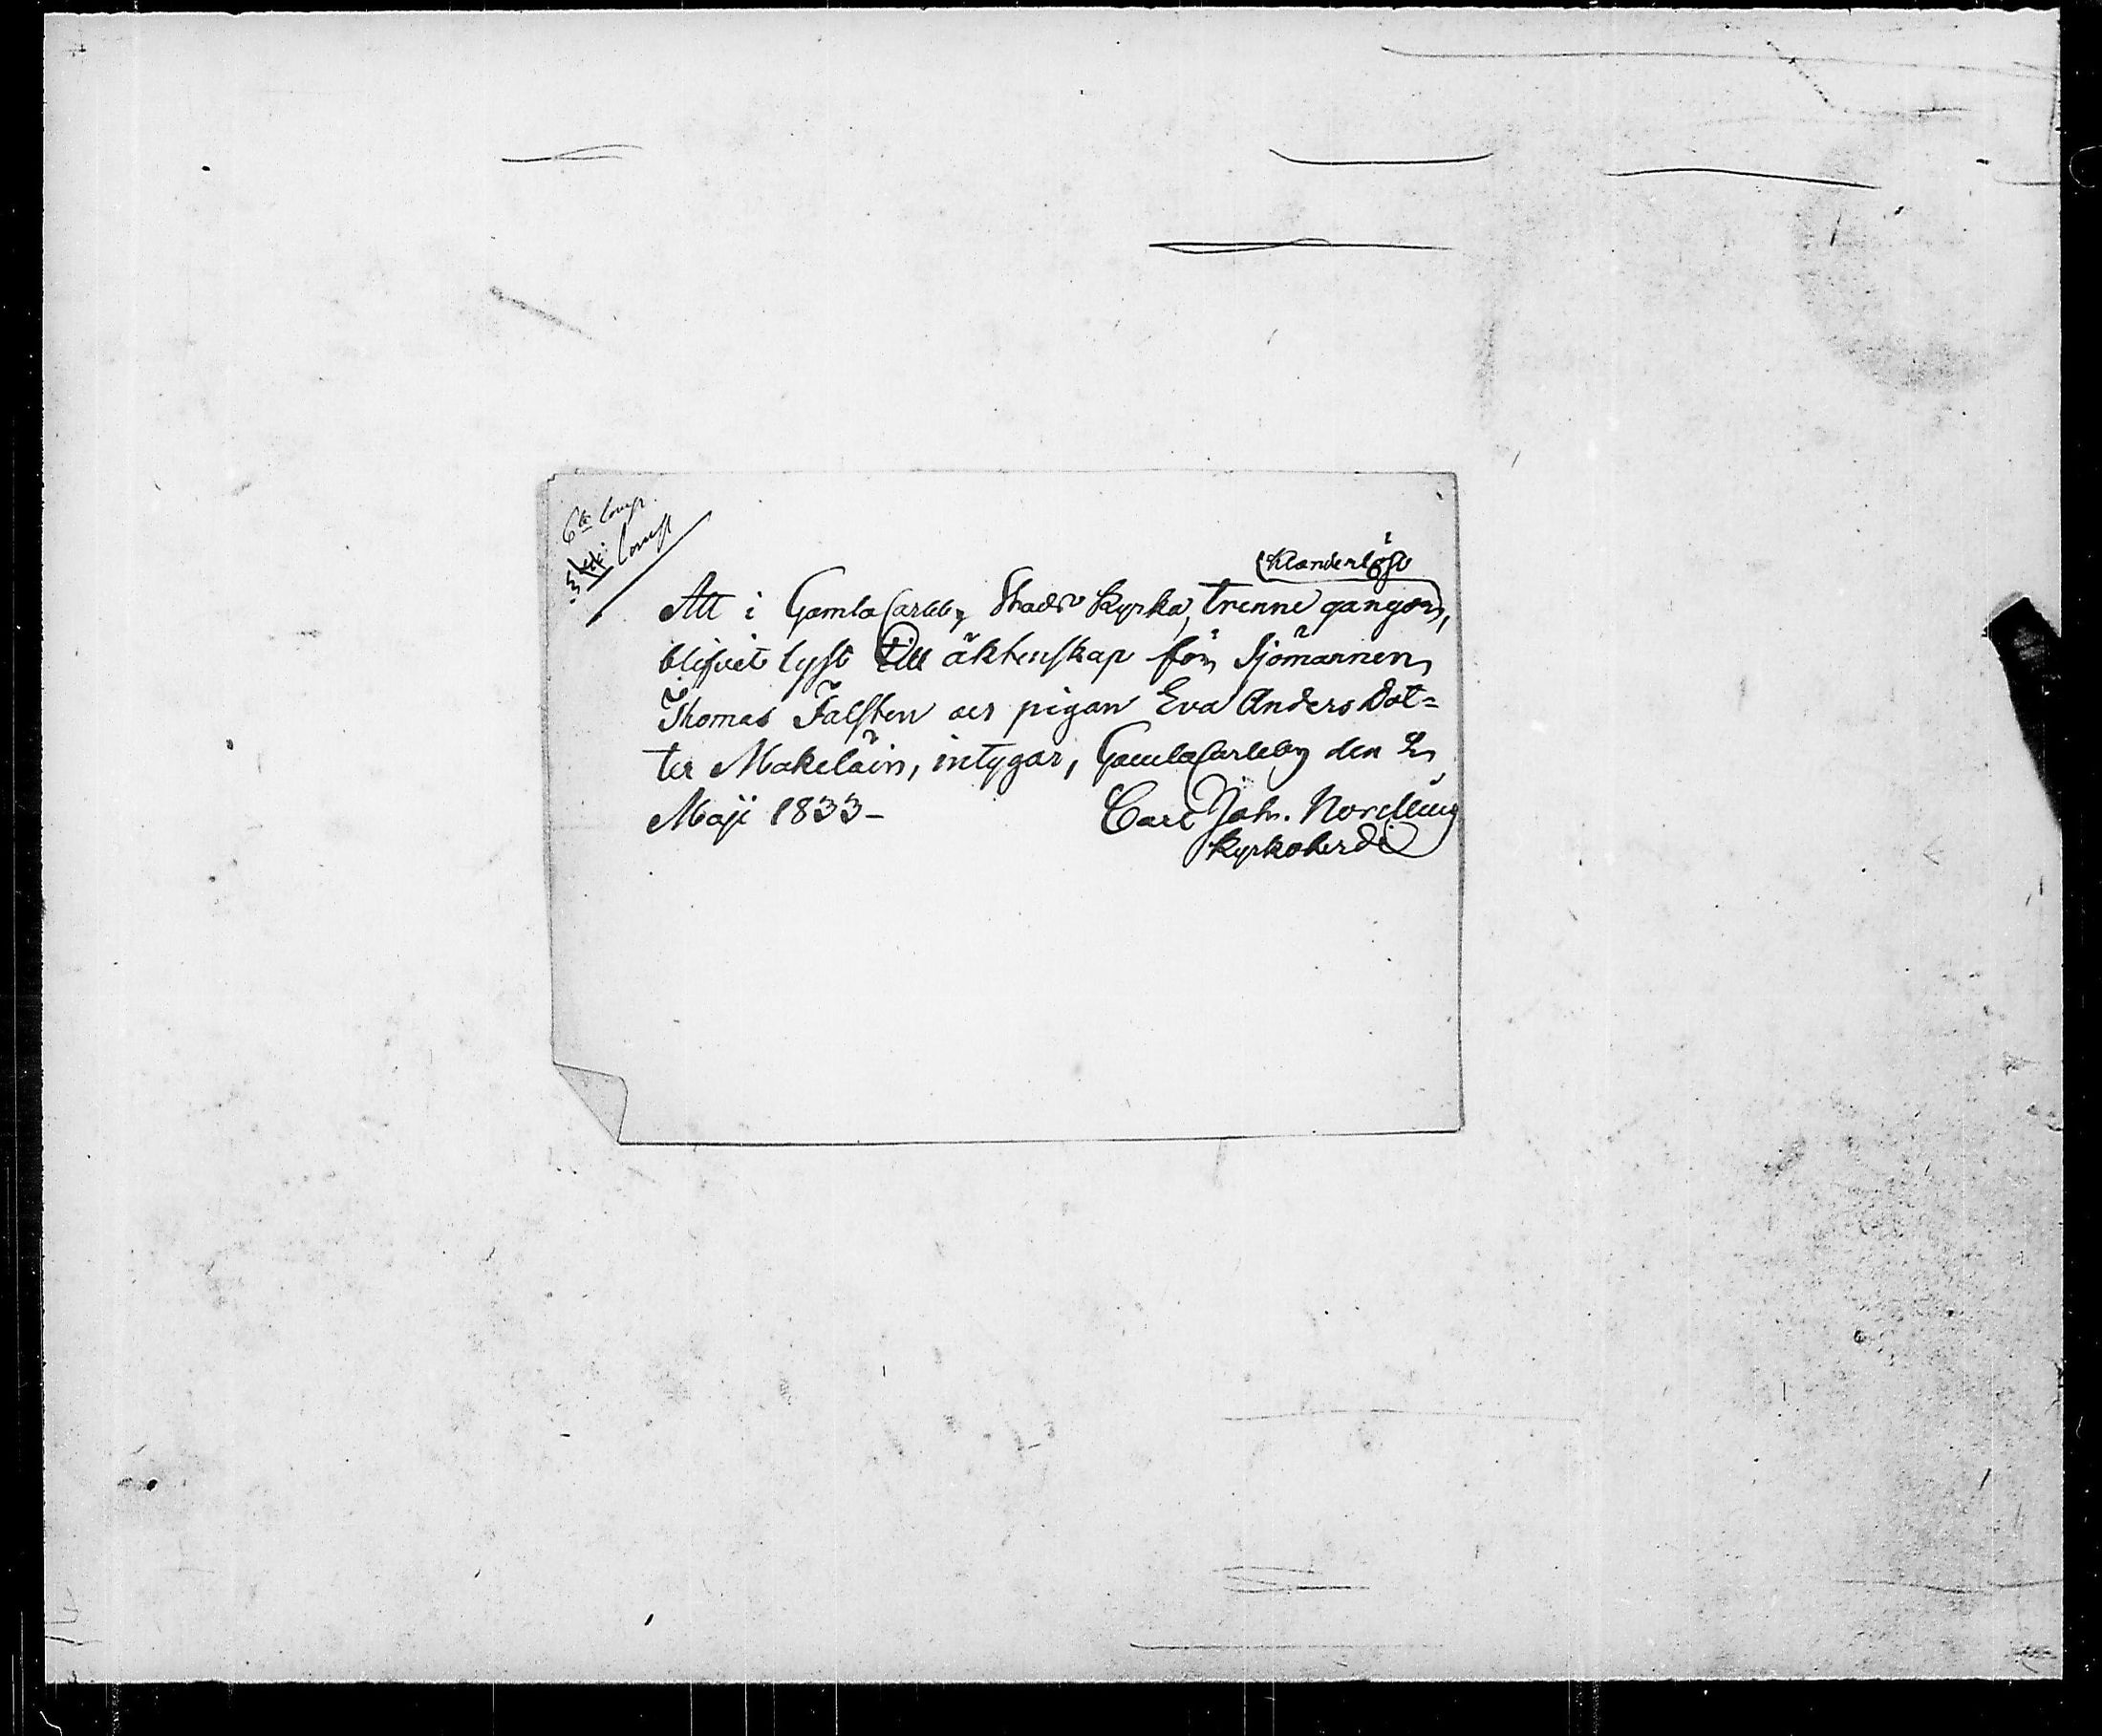 6te Comp.
Comp
klanderlöst
Att i GamlaCarleby Stads Kyrka, trenne gånger,
blifvit lyst till äktenskap för Sjömannen
Thomas Falsten och pigan Eva Anders Dot=
ter Makeläin, intygar, GamlaCarleby den 2
Maji 1833-
Carl Joh. Nordlung
Kyrkoherde